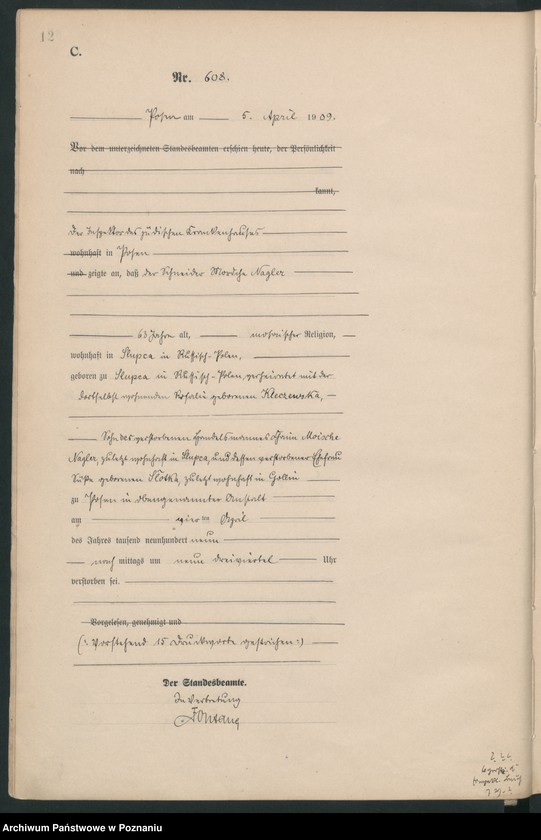 12
C.
Nr. 608.
Posen am 5. April 1909.
Vor dem unterzeichneten Standesbeamten erschien heute, der Persönlichkeit
nach
kannt,
Der Inspektor des jüdischen Krankenhauses
wohnhaft in Posen
und zeigte an, daß der Schneider Mordche Nagler
63 Jahre alt, mosaischer Religion,
wohnhaft in Slupca in Russisch-Polen,
geboren zu Slupca in Russisch-Polen, verheiratet mit der
dortselbst wohnenden Rosalie geborenen Kleczewska,
Sohn des verstorbenen Handelsmannes Chaim Moische
Nagler, zuletzt wohnhaft in Slupca, und dessen verstorbener Ehefrau
geborenen Slotka, zuletzt wohnhaft in Gollin
zu Posen in obengenannter Anstalt
am vierten April
des Jahres tausend neunhundert neun
nach mittags um neun dreiviertel Uhr
verstorben sei.
Vorgelesen, genehmigt und
(: Vorstehend 15 Druckworte gestrichen :)
Der Standesbeamte.
In Vertretung
Fontane
Archiwum Państwowe w Poznaniu